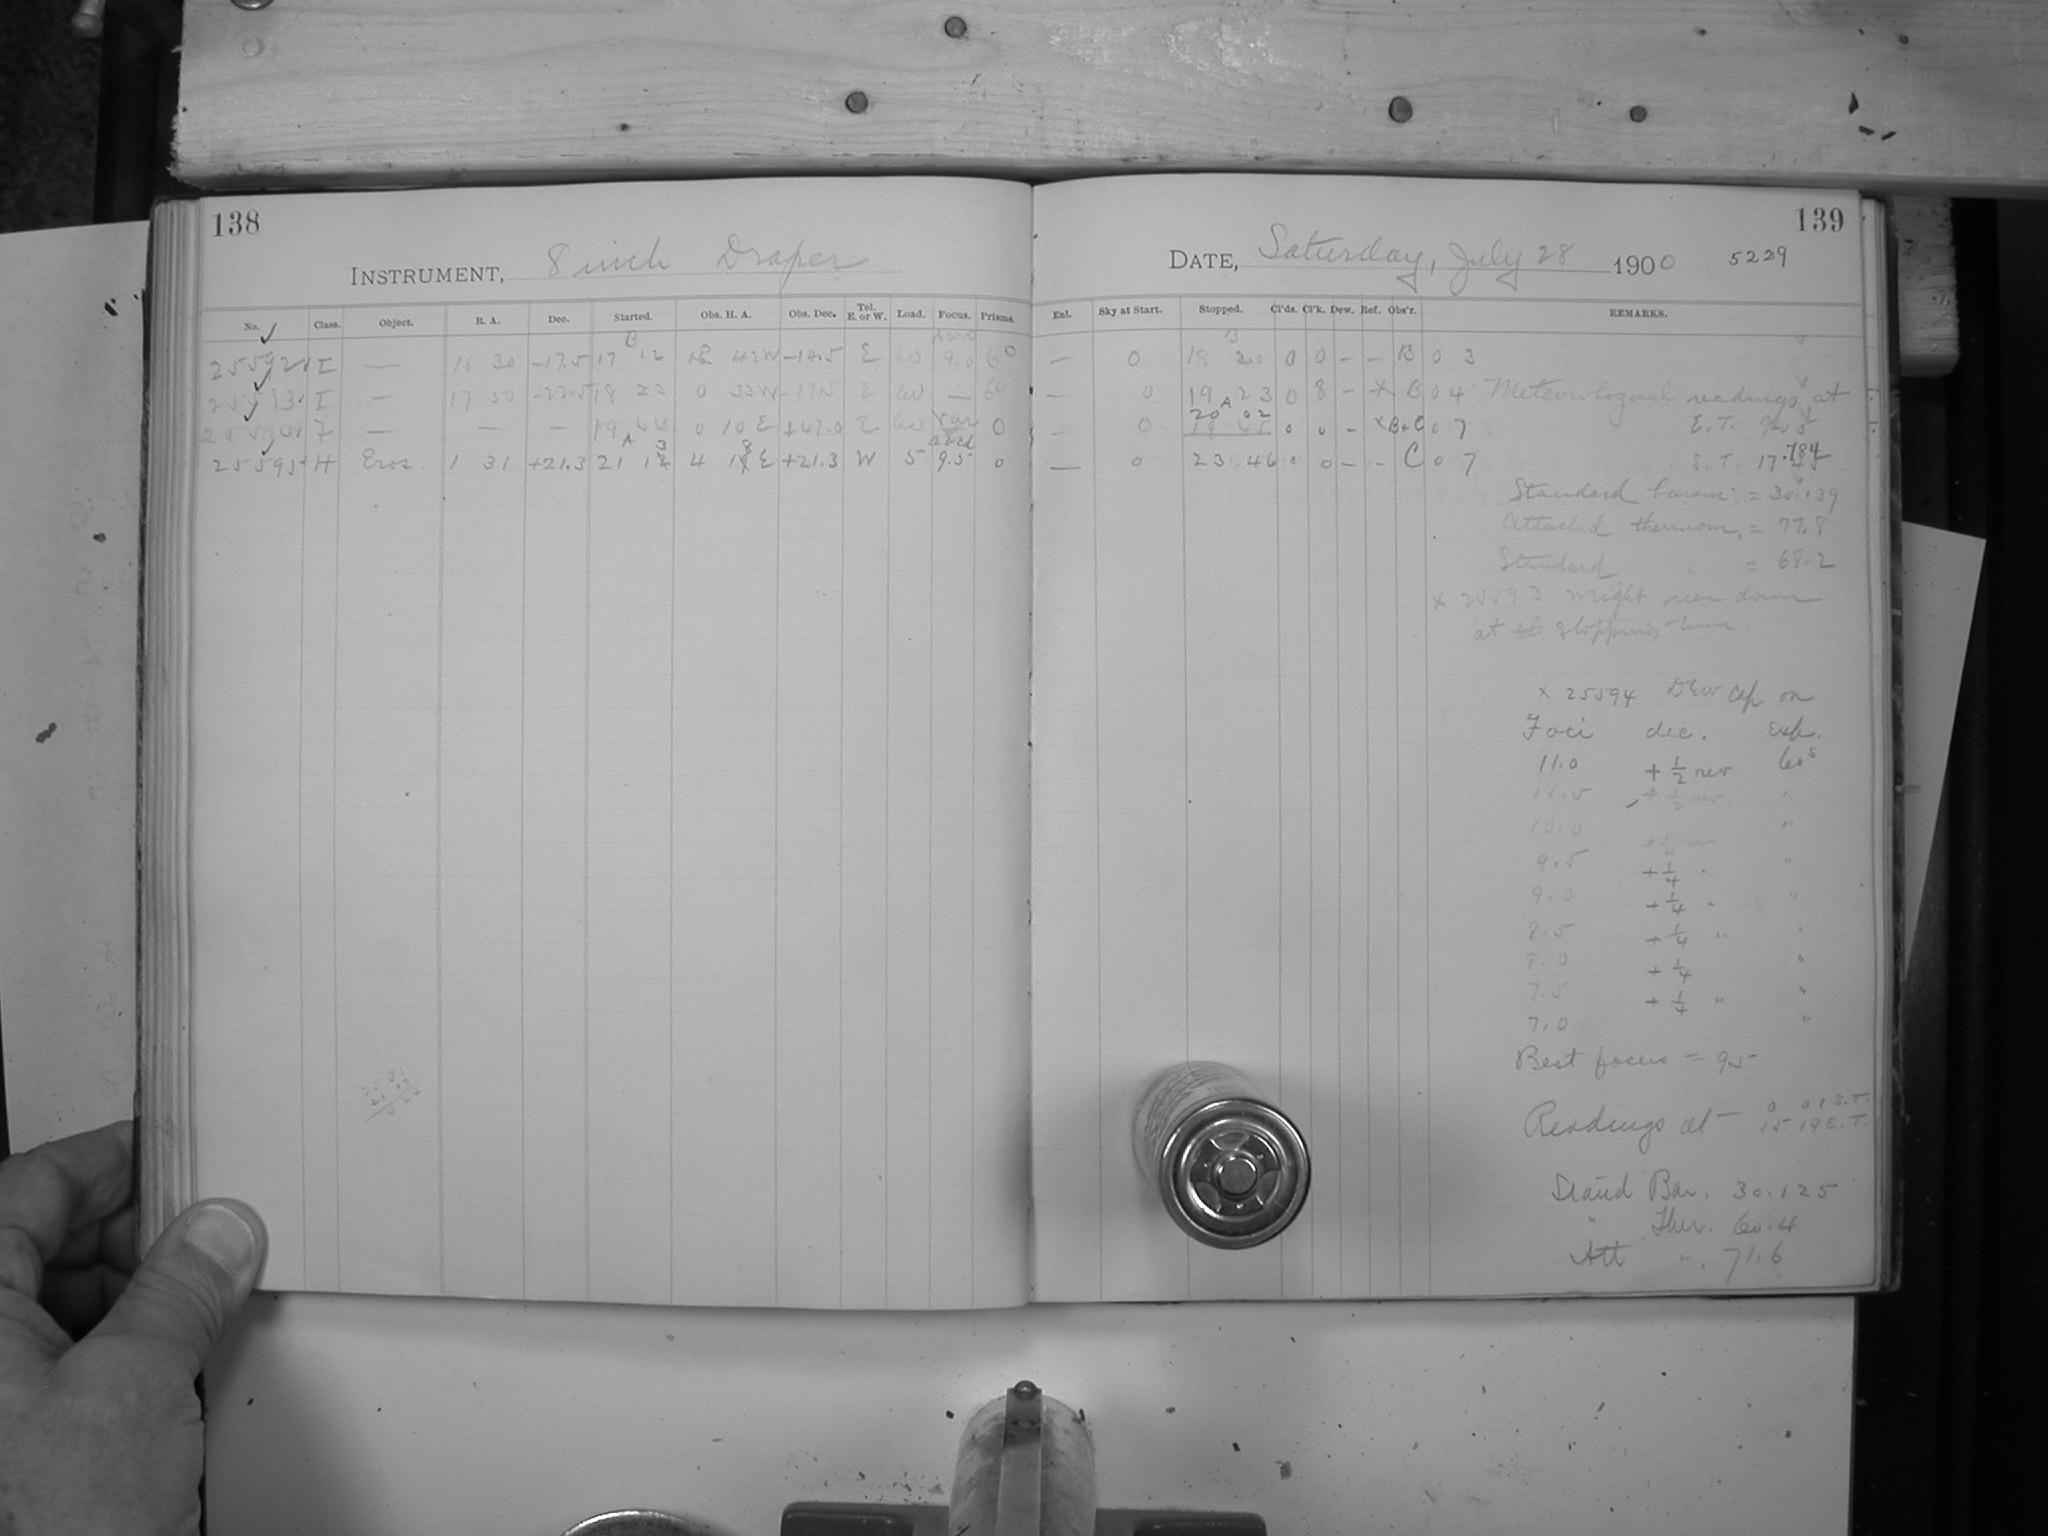 138
INSTRUMENT, 8 inch Draper
No. Class. Object. R. A. Dec. Started. Obs. H. A. Obs. Dec. Tel. E. or W. Load. Focus. Prisms.
25592 I — 16 30 -17.5 17 12 42W -14.5 E 60 9.0 60
I — 17 50 18 23 0 33W E 60 — 60
— — — 19 44 0 10 E +47.0 E 60 Var 0
25595 H Eros 1 31 +21.3 21 13 4 18 E +21.3 W 5 9.5 0
139
DATE, Saturday, July 28 1900 5229
Enl. Sky at Start. Stopped. Cl'ds. Cl'k. Dew. Ref. Obs'r. REMARKS.
— 0 18 20 0 0 – – B 0 3
— 0 19 23 0 8 – X B 0 4 Meteorlogical readings at
— 0 20 02 0 0 – X B+C 0 7 E. T.
— 0 23 46 0 0 – – C 0 7 S. T. 17.784
Standard barom = 30.139
Attached thermom. = 77.8
Standard " = 68.2
X 25593 weight run down
at stopping time.
X 25594 Dew cap on
Foci dec. Exp.
11.0 + 1/2 rev 60s
+ 1/2 rev "
10.0 "
9.5 + 1/4 " "
9.0 + 1/4 " "
8.5 + 1/4 " "
8.0 + 1/4 "
7.5 + 1/4 " "
7.0 "
Best focus = 9.5
Readings at 0 01 S.T.
15 19 E.T.
Stand Bar. 30.125
" Ther. 60.4
Att " . 71.6